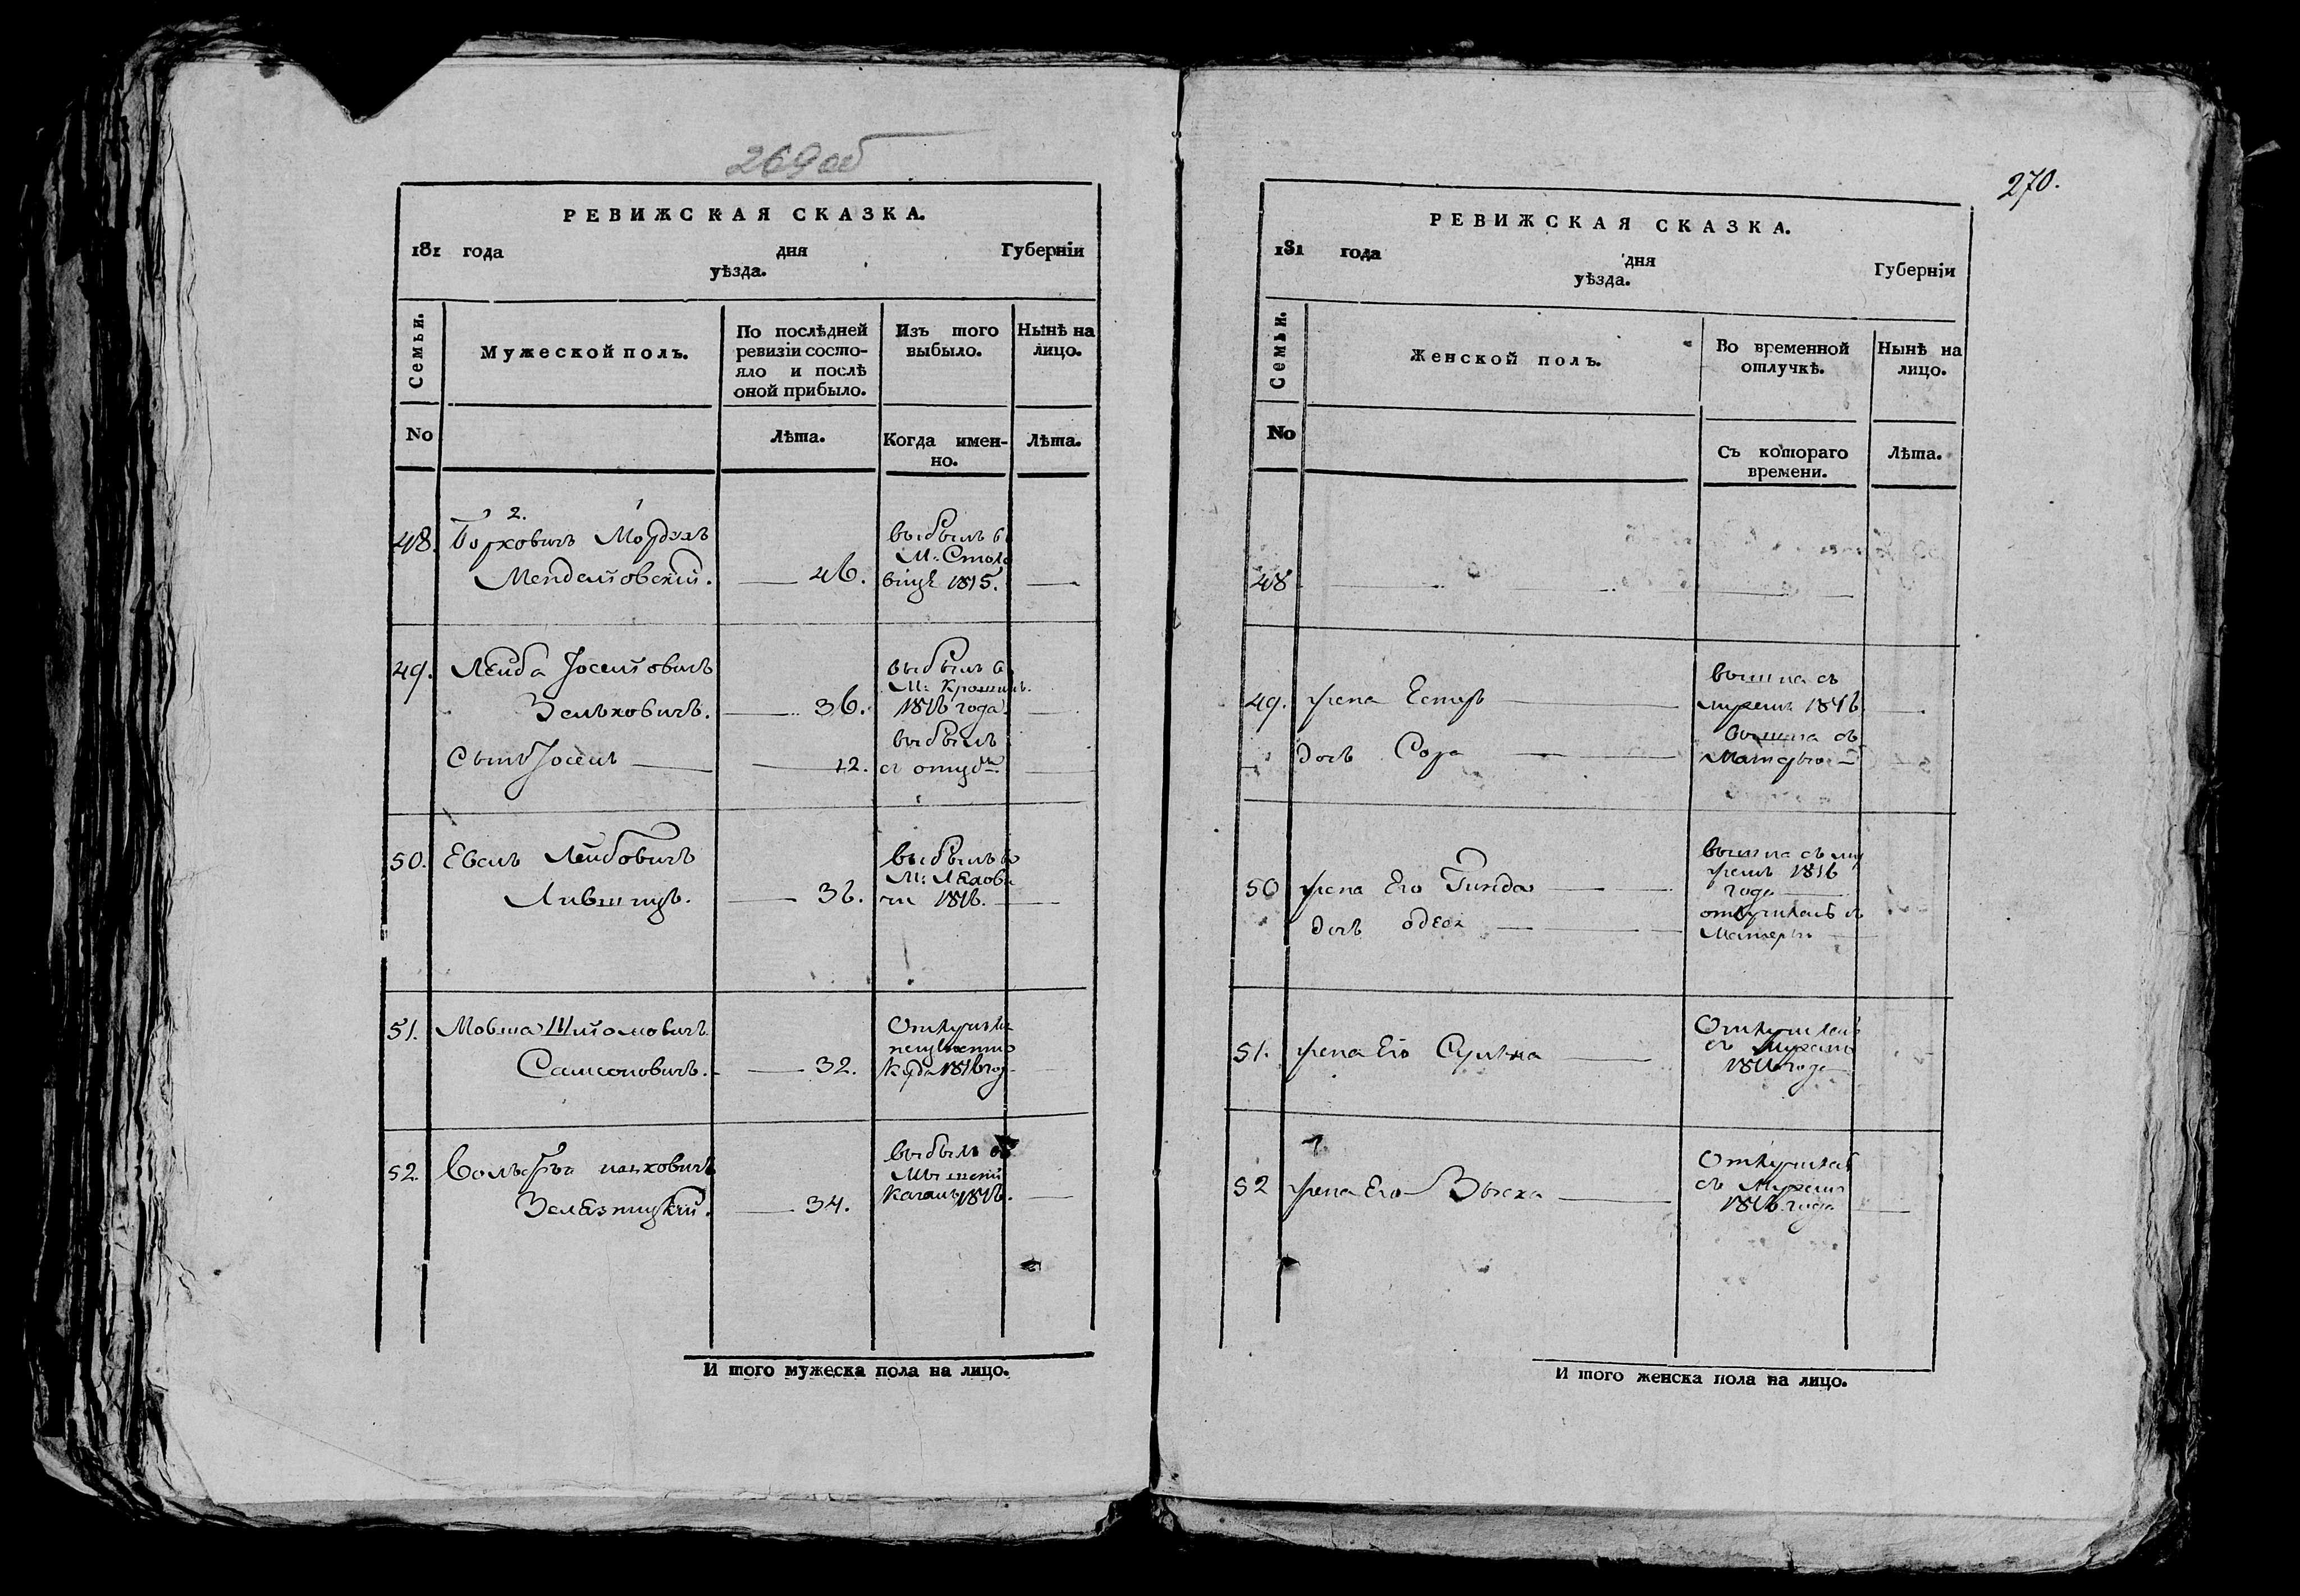 269 об
РЕВИЖСКАЯ СКАЗКА.
181 года дня Губерніи
уѣзда.
Семьи.
Мужеской полъ.
По послѣдней ревизіи состо-
яло и послѣ
оной прибыло.
Изъ того
выбыло.
Нынѣ на
лицо.
No
Лѣта.
Когда имен-
но.
Лѣта.
2. 1
48. Борковичъ Мордхъ
Менделіовскій. 46.
выбылъ въ
М: Столо
вицѣ 1815.
49. Лейба Іоселіовичъ
Зельковичъ. 36.
выбылъ в
М: Крошинъ.
1816 года
Сынъ Іосель 12.
выбылъ
с отцомъ
50. Евель Лейбовичъ
Лившицъ. 36.
выбылъ в
М: Ляхови
чи 1816.
51. Мовша Шліомовичъ
Самсоновичъ. 32.
Отлучился
неизвестно
куда 1816 год
52. Вольфъ
Зелязницкій. 34.
выбылъ
1816.
И того мужеска пола на лицо.
270.
РЕВИЖСКАЯ СКАЗКА.
181 года дня Губерніи
уѣзда.
Семьи.
Женской полъ.
Во временной
отлучкѣ.
Нынѣ на
лицо.
No
Съ котораго
времени.
Лѣта.
48
49. жена Естеръ
вышла съ
мужемъ 1816
дочь Сора
вышла съ
Матерью
50 жена Его Гинда
вышла съ му
жемъ 1816
года
дочь
отлучилась съ
Матерью
51. жена Его
Отлучилась
съ Мужемъ
1816 года
52 жена Его
Отлучилась
съ Мужемъ
1816 года
И того женска пола на лицо.